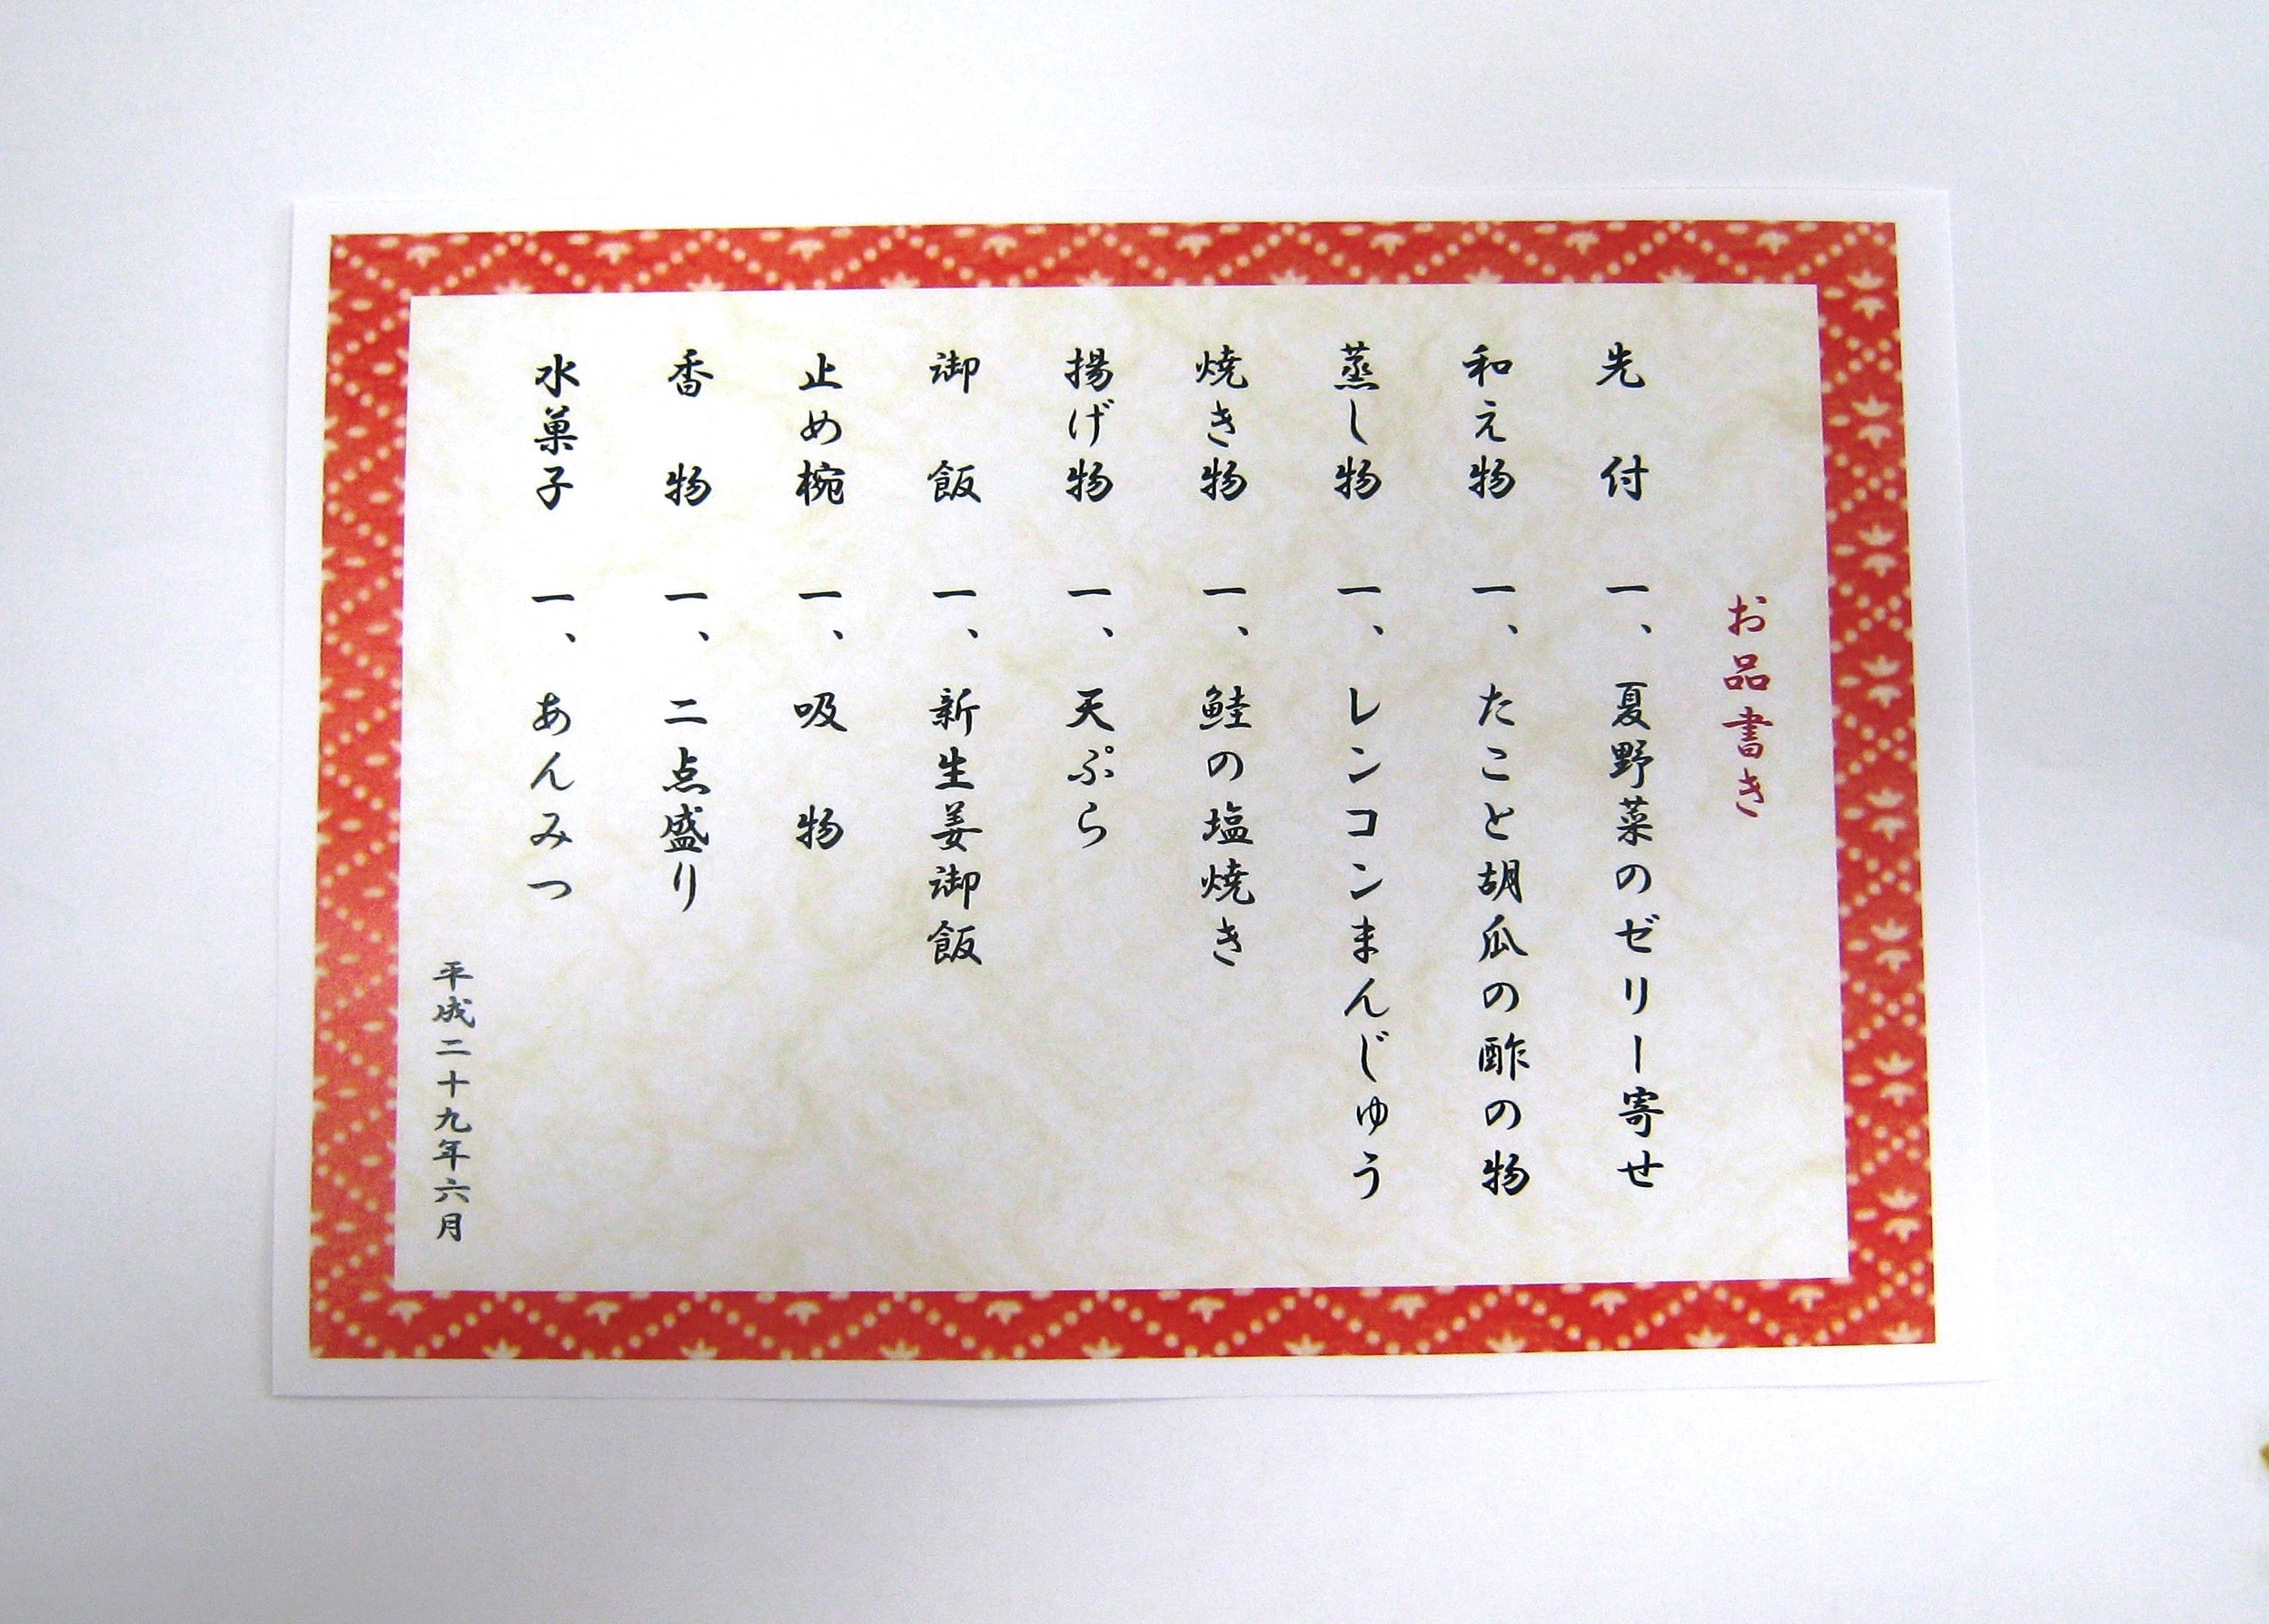 お品書き
先付 一、夏野菜のゼリー寄せ
和え物 一、たこと胡瓜の酢の物
蒸し物 一、レンコンまんじゅう
焼き物 一、鮭の塩焼き
揚げ物 一、天ぷら
御飯 一、新生姜御飯
止め椀 一、吸物
香物 一、二点盛り
水菓子 一、あんみつ
平成二十九年六月